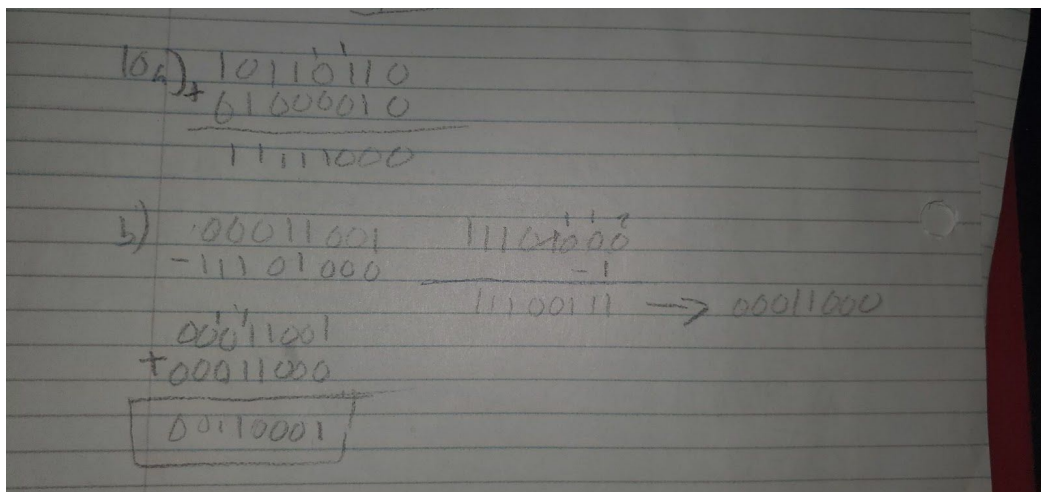 10a) 10110110
+ 01000010
11111000
b) 00011001
- 11101000
11101000
- 1
11100111 → 00011000
00011001
+ 00011000
00110001